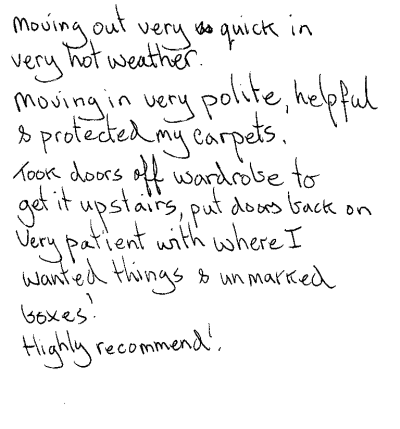 Moving out very quick in
very hot weather.
Moving in very polite, helpful
& protected my carpets.
Took doors off wardrobe to
get it upstairs, put doors back on
Very patient with where I
wanted things & unmarked
boxes!
Highly recommend!